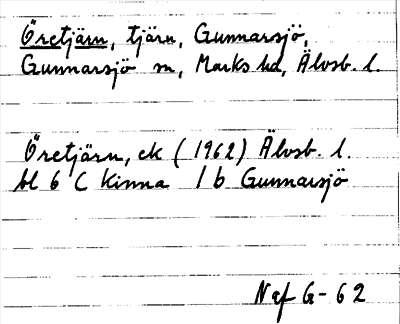 Öretjärn, tjärn, Gunnarsjö,
Gunnarsjö sn, Marks hd, Älvsb. l.
Öretjärn, ek (1962) Älvsb. l.
bl 6 C Kinna 1 b Gunnarsjö
Naf G-62